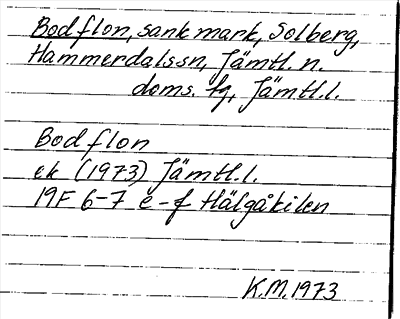 Bodflon, sank mark, Solberg,
Hammerdalssn, Jämtl. n.
doms. tg, Jämtl.l.
Bodflon
ek (1973) Jämtl.l.
19F 6-7 e-f Hälgåkilen
K.M. 1973